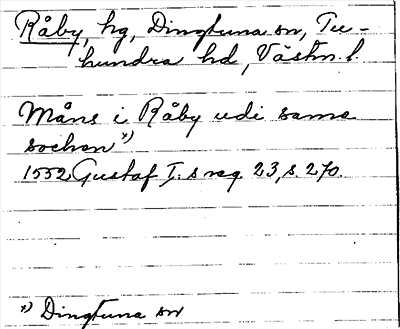 Råby, hg, Dingtuna sn, Tu-
hundra hd, Västm. l.
Måns i Råby udi same
sochen x)
1552 Gustaf I:s reg. 23, s. 270.
x) Dingtuna sn